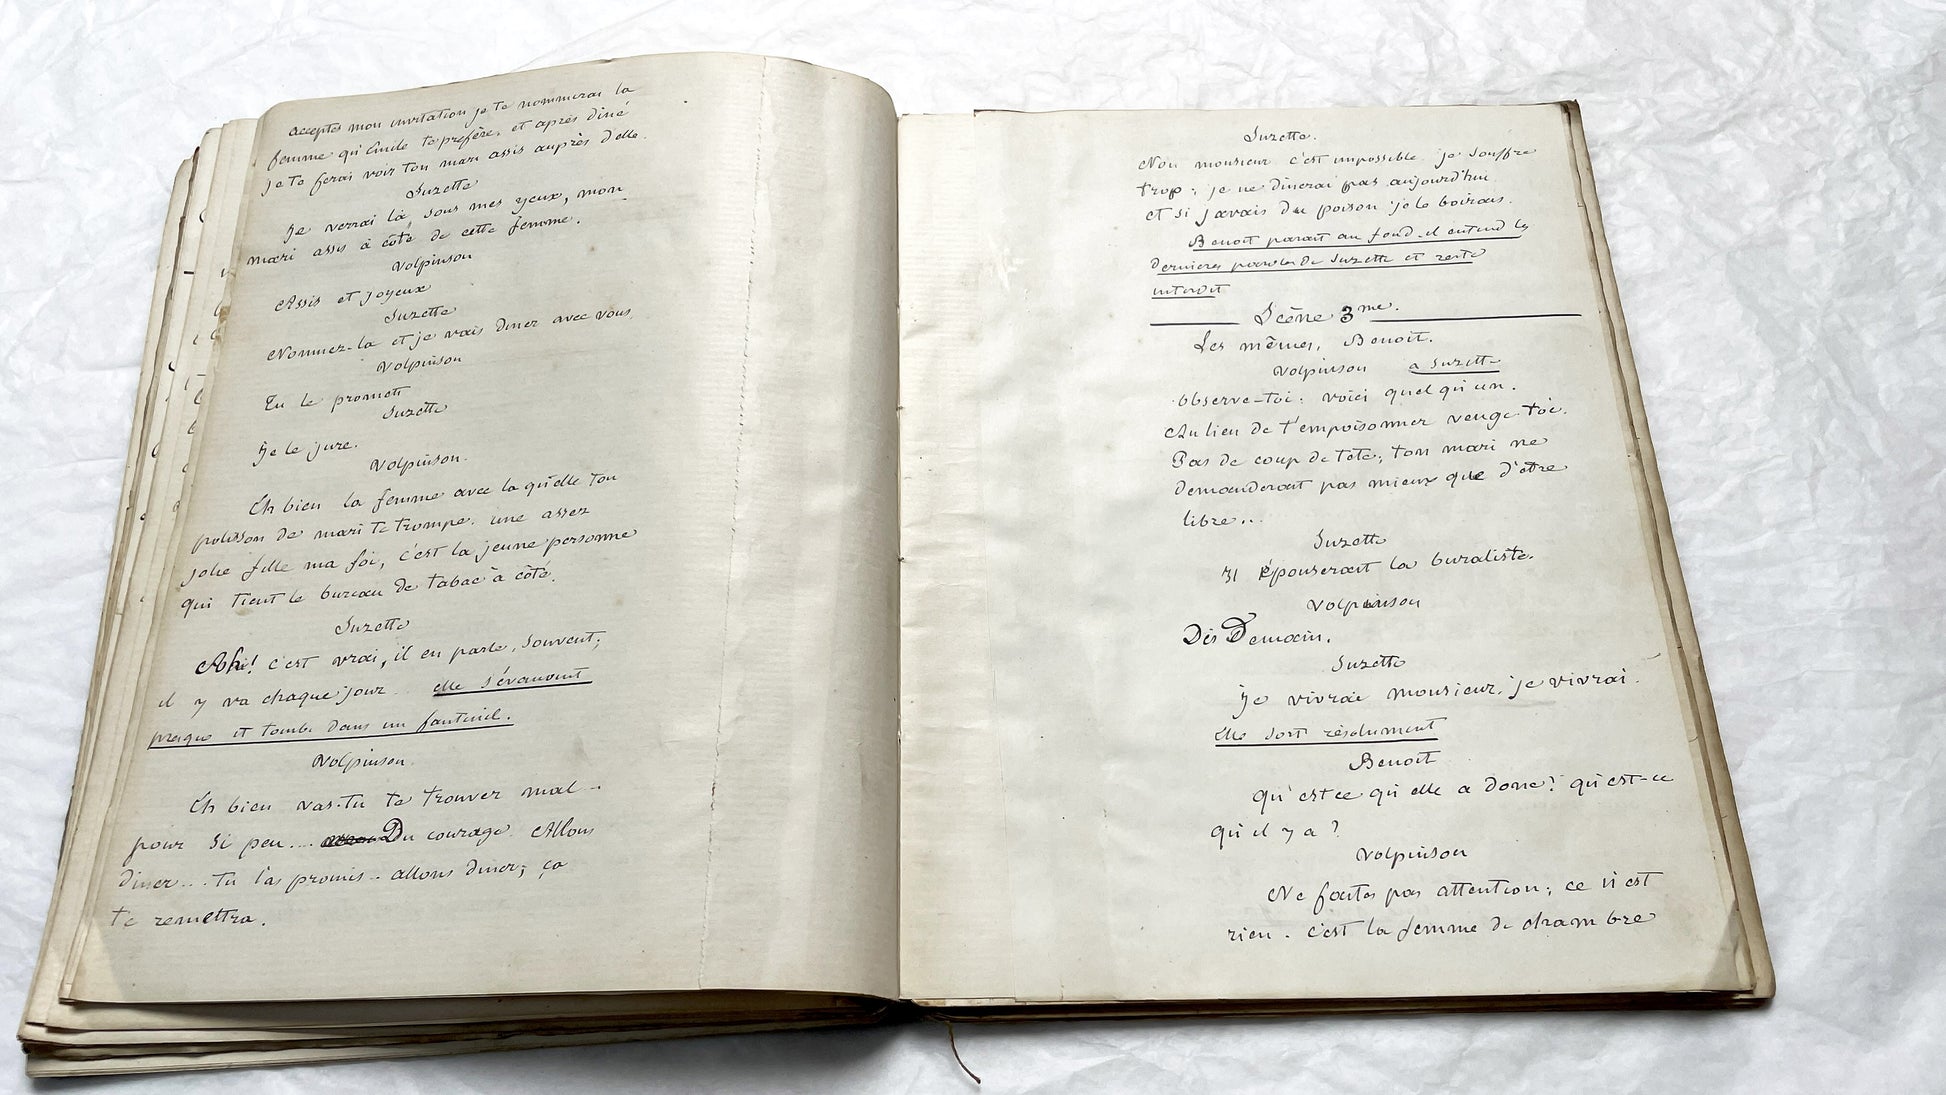 acceptes mon invitation je te nommerai la
femme qu'Emile te préfère. et après diné
je te ferai voir ton mari assis auprès d'elle.
Suzette
Je verrai là, sous mes yeux, mon
mari assis à côté de cette femme.
Volpinson
Assis et joyeux
Suzette
Nommez-la et je vais diner avec vous.
Volpinson
Tu le promets
Suzette
Je le jure.
Volpinson.
Eh bien la femme avec la qu'elle ton
polisson de mari te trompe. une assez
jolie fille ma foi, c'est la jeune personne
qui tient le bureau de tabac à côté.
Suzette
Ah! c'est vrai, il en parle, souvent;
il y va chaque jour .. elle s'évanouit
presque et tombe dans un fauteuil.
Volpinson.
Eh bien vas-tu te trouver mal ..
pour si peu.... Du courage. Allons
diner... tu l'as promis .. allons diner; ça
te remettra.
Suzette.
Non monsieur c'est impossible je souffre
trop; je ne dinerai pas aujourd'hui
et si j'avais du poison je le boirais.
Benoit parait au fond. il entend les
dernieres paroles de Suzette et reste
interdit
Scène 3me.
Les mêmes, Benoit.
Volpinson a Suzette
observe-toi: voici quelqu'un.
Au lieu de t'empoisonner venge-toi.
Pas de coup de tete; ton mari ne
demanderait pas mieux que d'être
libre...
Suzette
Il épouserait la buraliste.
Volpinson
Dès Demain.
Suzette
Je vivrai monsieur, je vivrai.
elle sort résolument
Benoit
Qu'est ce qu'elle a donc? qu'est-ce
qu'il y a?
Volpinson
Ne faites pas attention; ce n'est
rien. c'est la femme de chambre